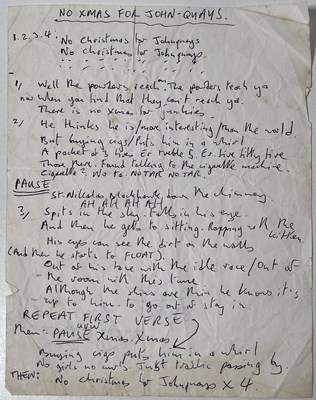 NO XMAS FOR JOHN-QUAYS.
1.2.3.4: No Christmas for Johnquays
No Christmas for Johnquays
1/ Well the powders reach you. The powders teach ya
now when you find that they can't reach ya.
There is no Xmas for junkies
2/ He thinks he is/more interesting/than the world.
But buying cigs/Puts him in a whirl
A pocket of 3 fives Er tuckle 5. Er five fifty, five
Than there. Found talking to the cigarette machine
Cigarette? No ta. NO TAR NO TAR
PAUSE
St. Nikolas down the chimney.
AH AH AH AH
3/ Spits in the sky. Falls in his eye
And then he gets to sitting. Rapping with the kitten
His eyes can see the dirt on the walls
(And then he starts to FLOAT).
Out of his face with the idle race/Out of
the room with his tune
Although the skins are thin he knows it's
up to him. to go out or stay in
REPEAT FIRST VERSE
Then: PAUSE again Xmas Xmas
Buying cigs puts him in a whirl
No girls no curls Just traffic passing by.
THEN: No christmas for Johnquays X 4.